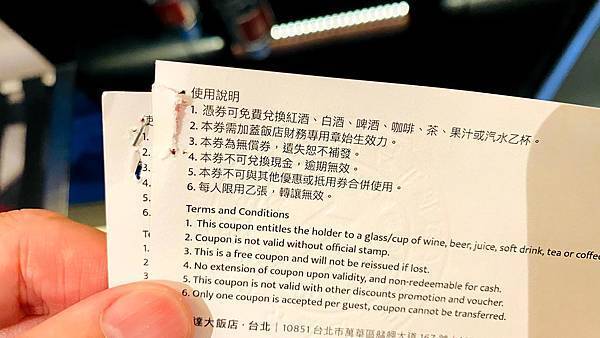 使用說明
1. 憑券可免費兌換紅酒、白酒、啤酒、咖啡、茶、果汁或汽水乙杯。
2. 本券需加蓋飯店財務專用章始生效力。
3. 本券為無償券，遺失恕不補發。
4. 本券不可兌換現金，逾期無效。
5. 本券不可與其他優惠或抵用券合併使用。
6. 每人限用乙張，轉讓無效。
Terms and Conditions
1. This coupon entitles the holder to a glass/cup of wine, beer, juice, soft drink, tea or coffee
2. Coupon is not valid without official stamp.
3. This is a free coupon and will not be reissued if lost.
4. No extension of coupon upon validity, and non-redeemable for cash.
5. This coupon is not valid with other discounts promotion and voucher.
6. Only one coupon is accepted per guest, coupon cannot be transferred.
達大飯店．台北 | 10851 台北市萬華區艋舺大道 167 號
1.
2.
3.
4.
5.
6.
1.
2
3